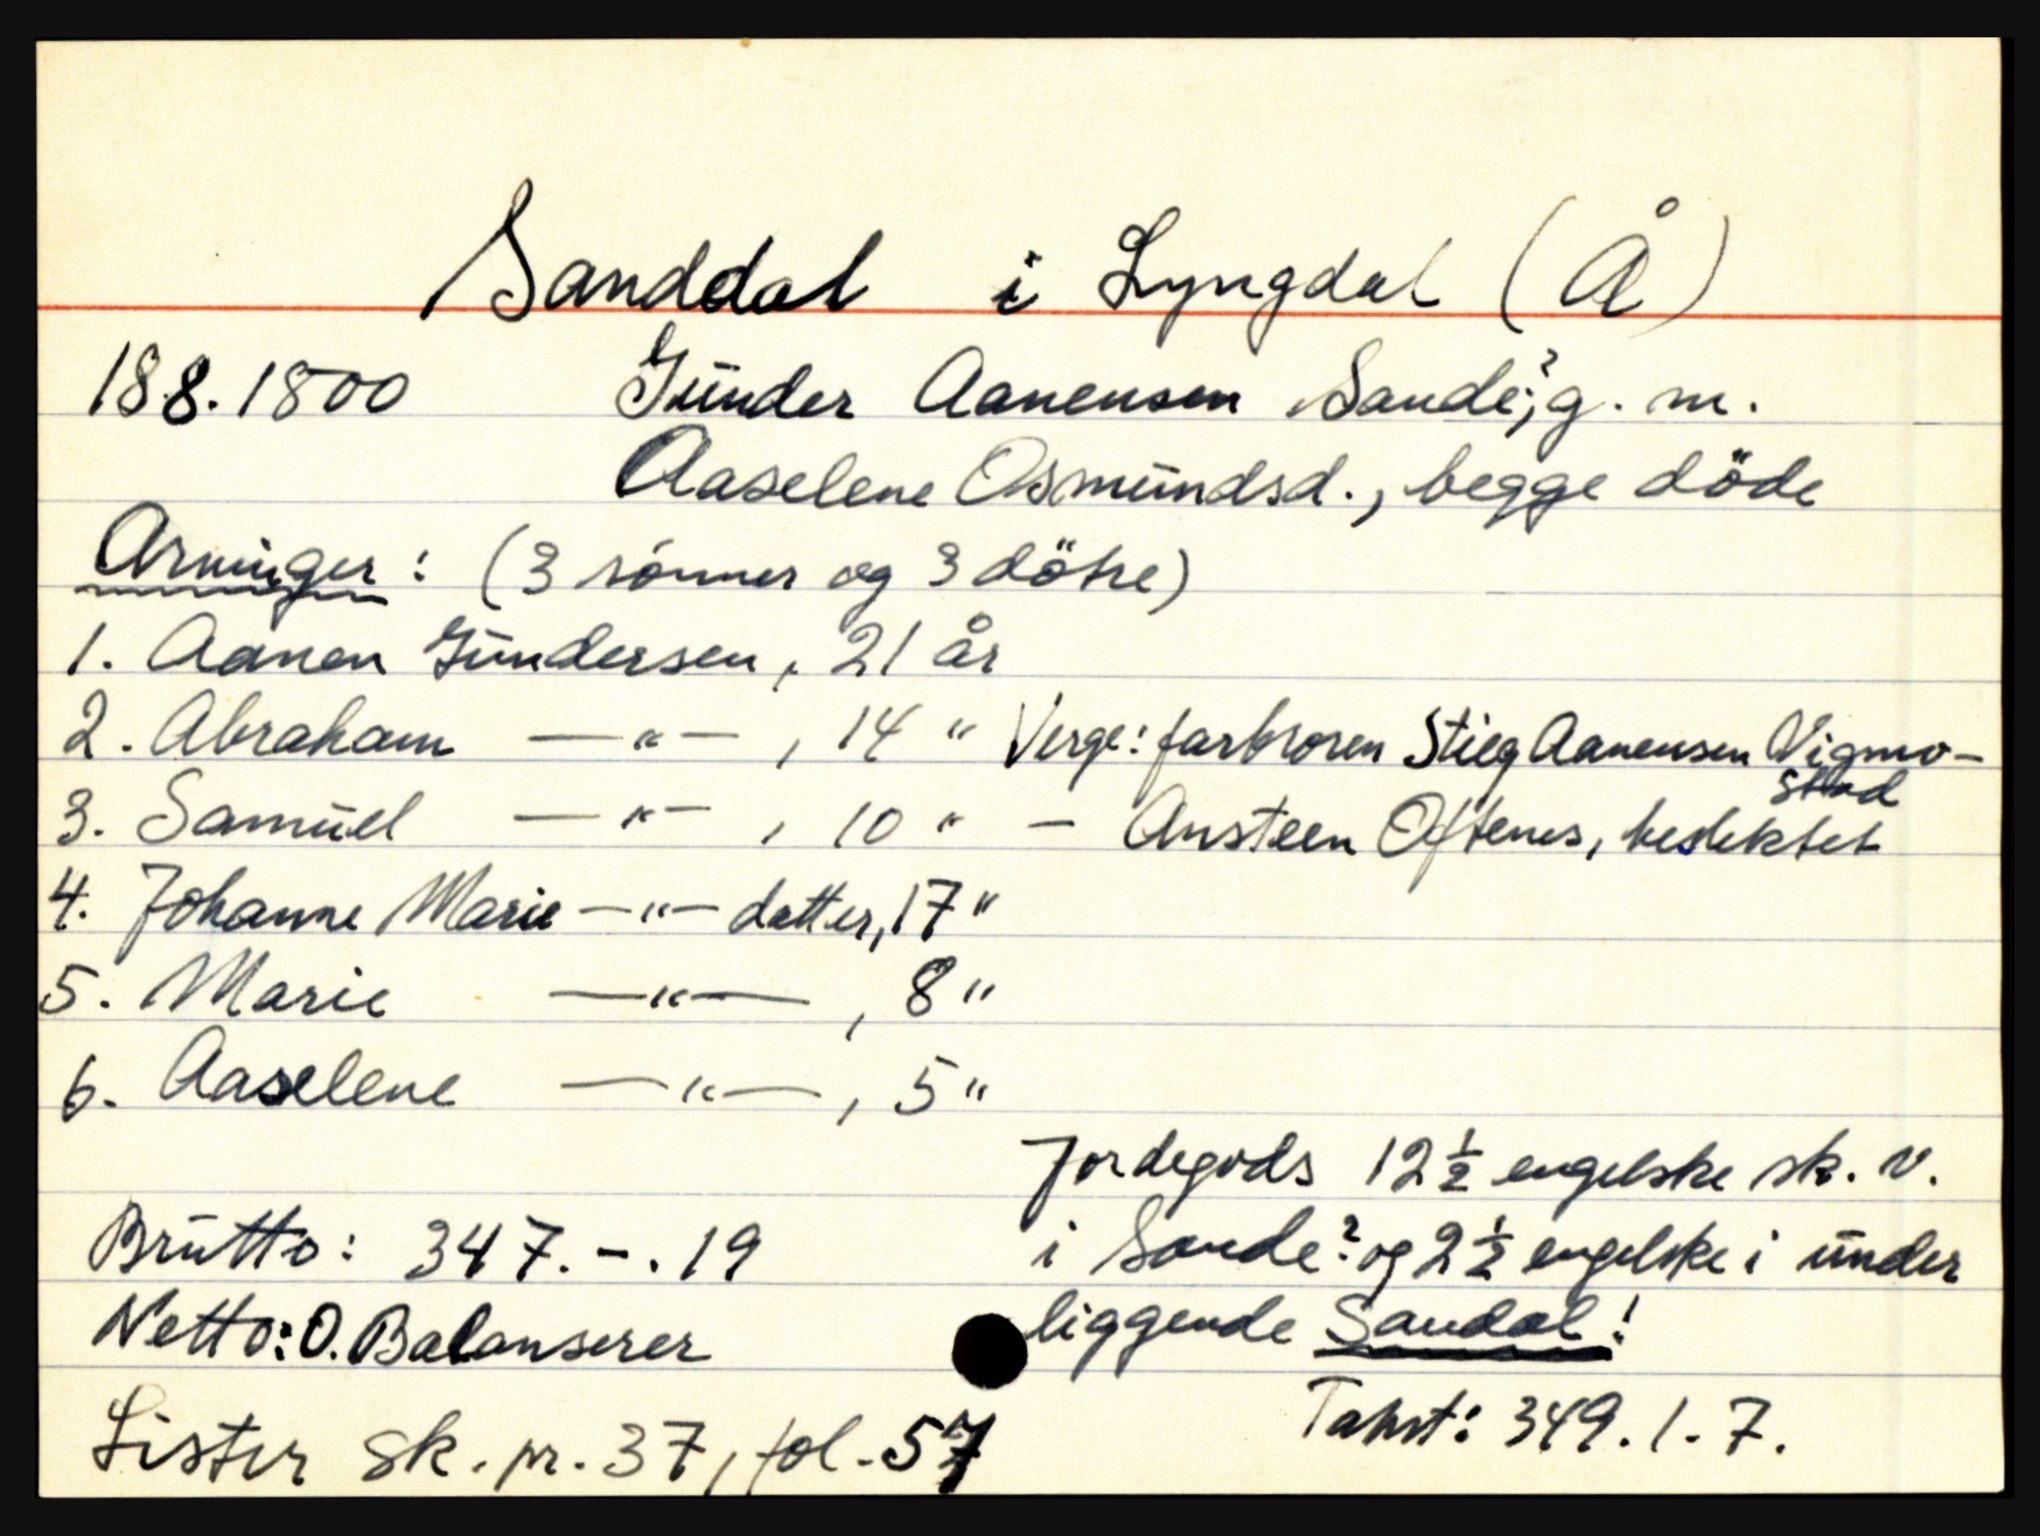 Sanddal i Lyngdal (Å)
18.8.1800 Gunder Aanensen Sande,? g. m.
Aaselene Osmundsd., begge döde
Arvinger: (3 sönner og 3 dötre)
1. Aanen Gundersen, 21 år
2. Abraham —"—, 14 " Verge: farbroren Stieg Aanensen Vigmo-
stad
3. Samuel —"—, 10 " — Ansteen Oftenes, beslektet
4. Johanne Marie —"— datter, 17 "
5. Marie —"—, 8 "
6. Aaselene —"—, 5 "
Jordegods 12 ½ engelske sk. v.
Brutto: 347. - . 19 i Sande? og 2 ½ engelske i under
Netto: O. Balanserer liggende Sandal!
Takst: 349. 1. 7.
Lister sk. pr. 37, fol. 57